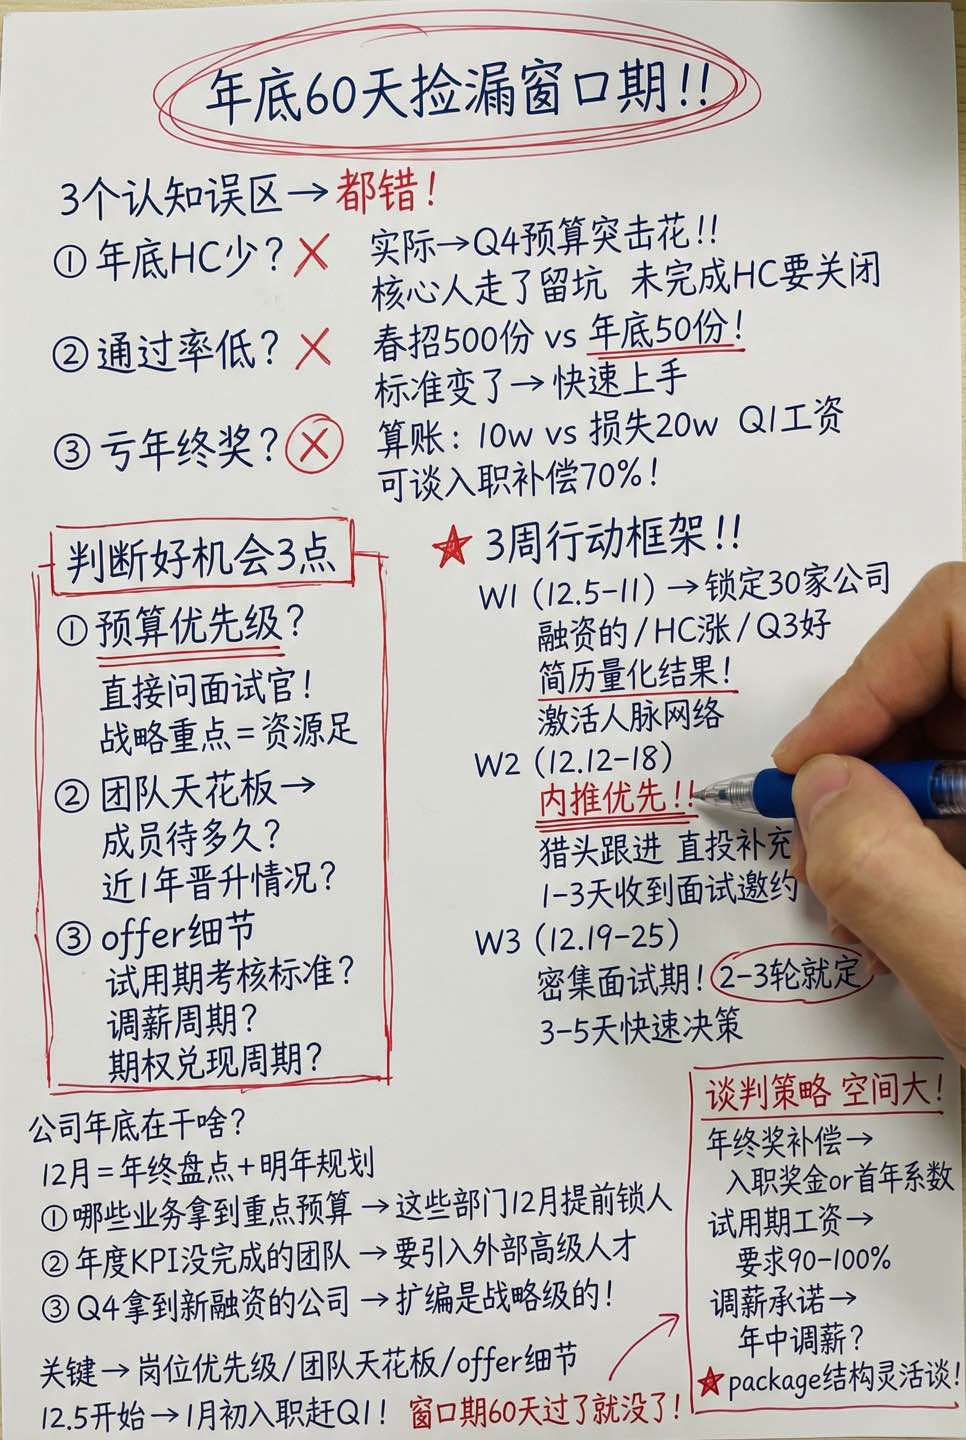 年底60天捡漏窗口期!!
3个认知误区→都错!
① 年底HC少? ✕
实际→Q4预算突击花!!
核心人走了留坑 未完成HC要关闭
② 通过率低? ✕
春招500份 vs 年底50份!
标准变了→快速上手
③ 亏年终奖? ✕
算账: 10w vs 损失20w Q1工资
可谈入职补偿70%!
判断好机会3点
① 预算优先级?
直接问面试官!
战略重点=资源足
② 团队天花板→
成员待多久?
近1年晋升情况?
③ offer细节
试用期考核标准?
调薪周期?
期权兑现周期?
★ 3周行动框架!!
W1 (12.5-11) →锁定30家公司
融资的/HC涨/Q3好
简历量化结果!
激活人脉网络
W2 (12.12-18)
内推优先!!
猎头跟进 直投补充
1-3天收到面试邀约
W3 (12.19-25)
密集面试期! 2-3轮就定
3-5天快速决策
公司年底在干啥?
12月=年终盘点+明年规划
① 哪些业务拿到重点预算→这些部门12月提前锁人
② 年度KPI没完成的团队→要引入外部高级人才
③ Q4拿到新融资的公司→扩编是战略级的!
关键→岗位优先级/团队天花板/offer细节
12.5开始→1月初入职赶Q1! 窗口期60天过了就没了!
谈判策略 空间大!
年终奖补偿→
入职奖金or首年系数
试用期工资→
要求90-100%
调薪承诺→
年中调薪?
★package结构灵活谈!